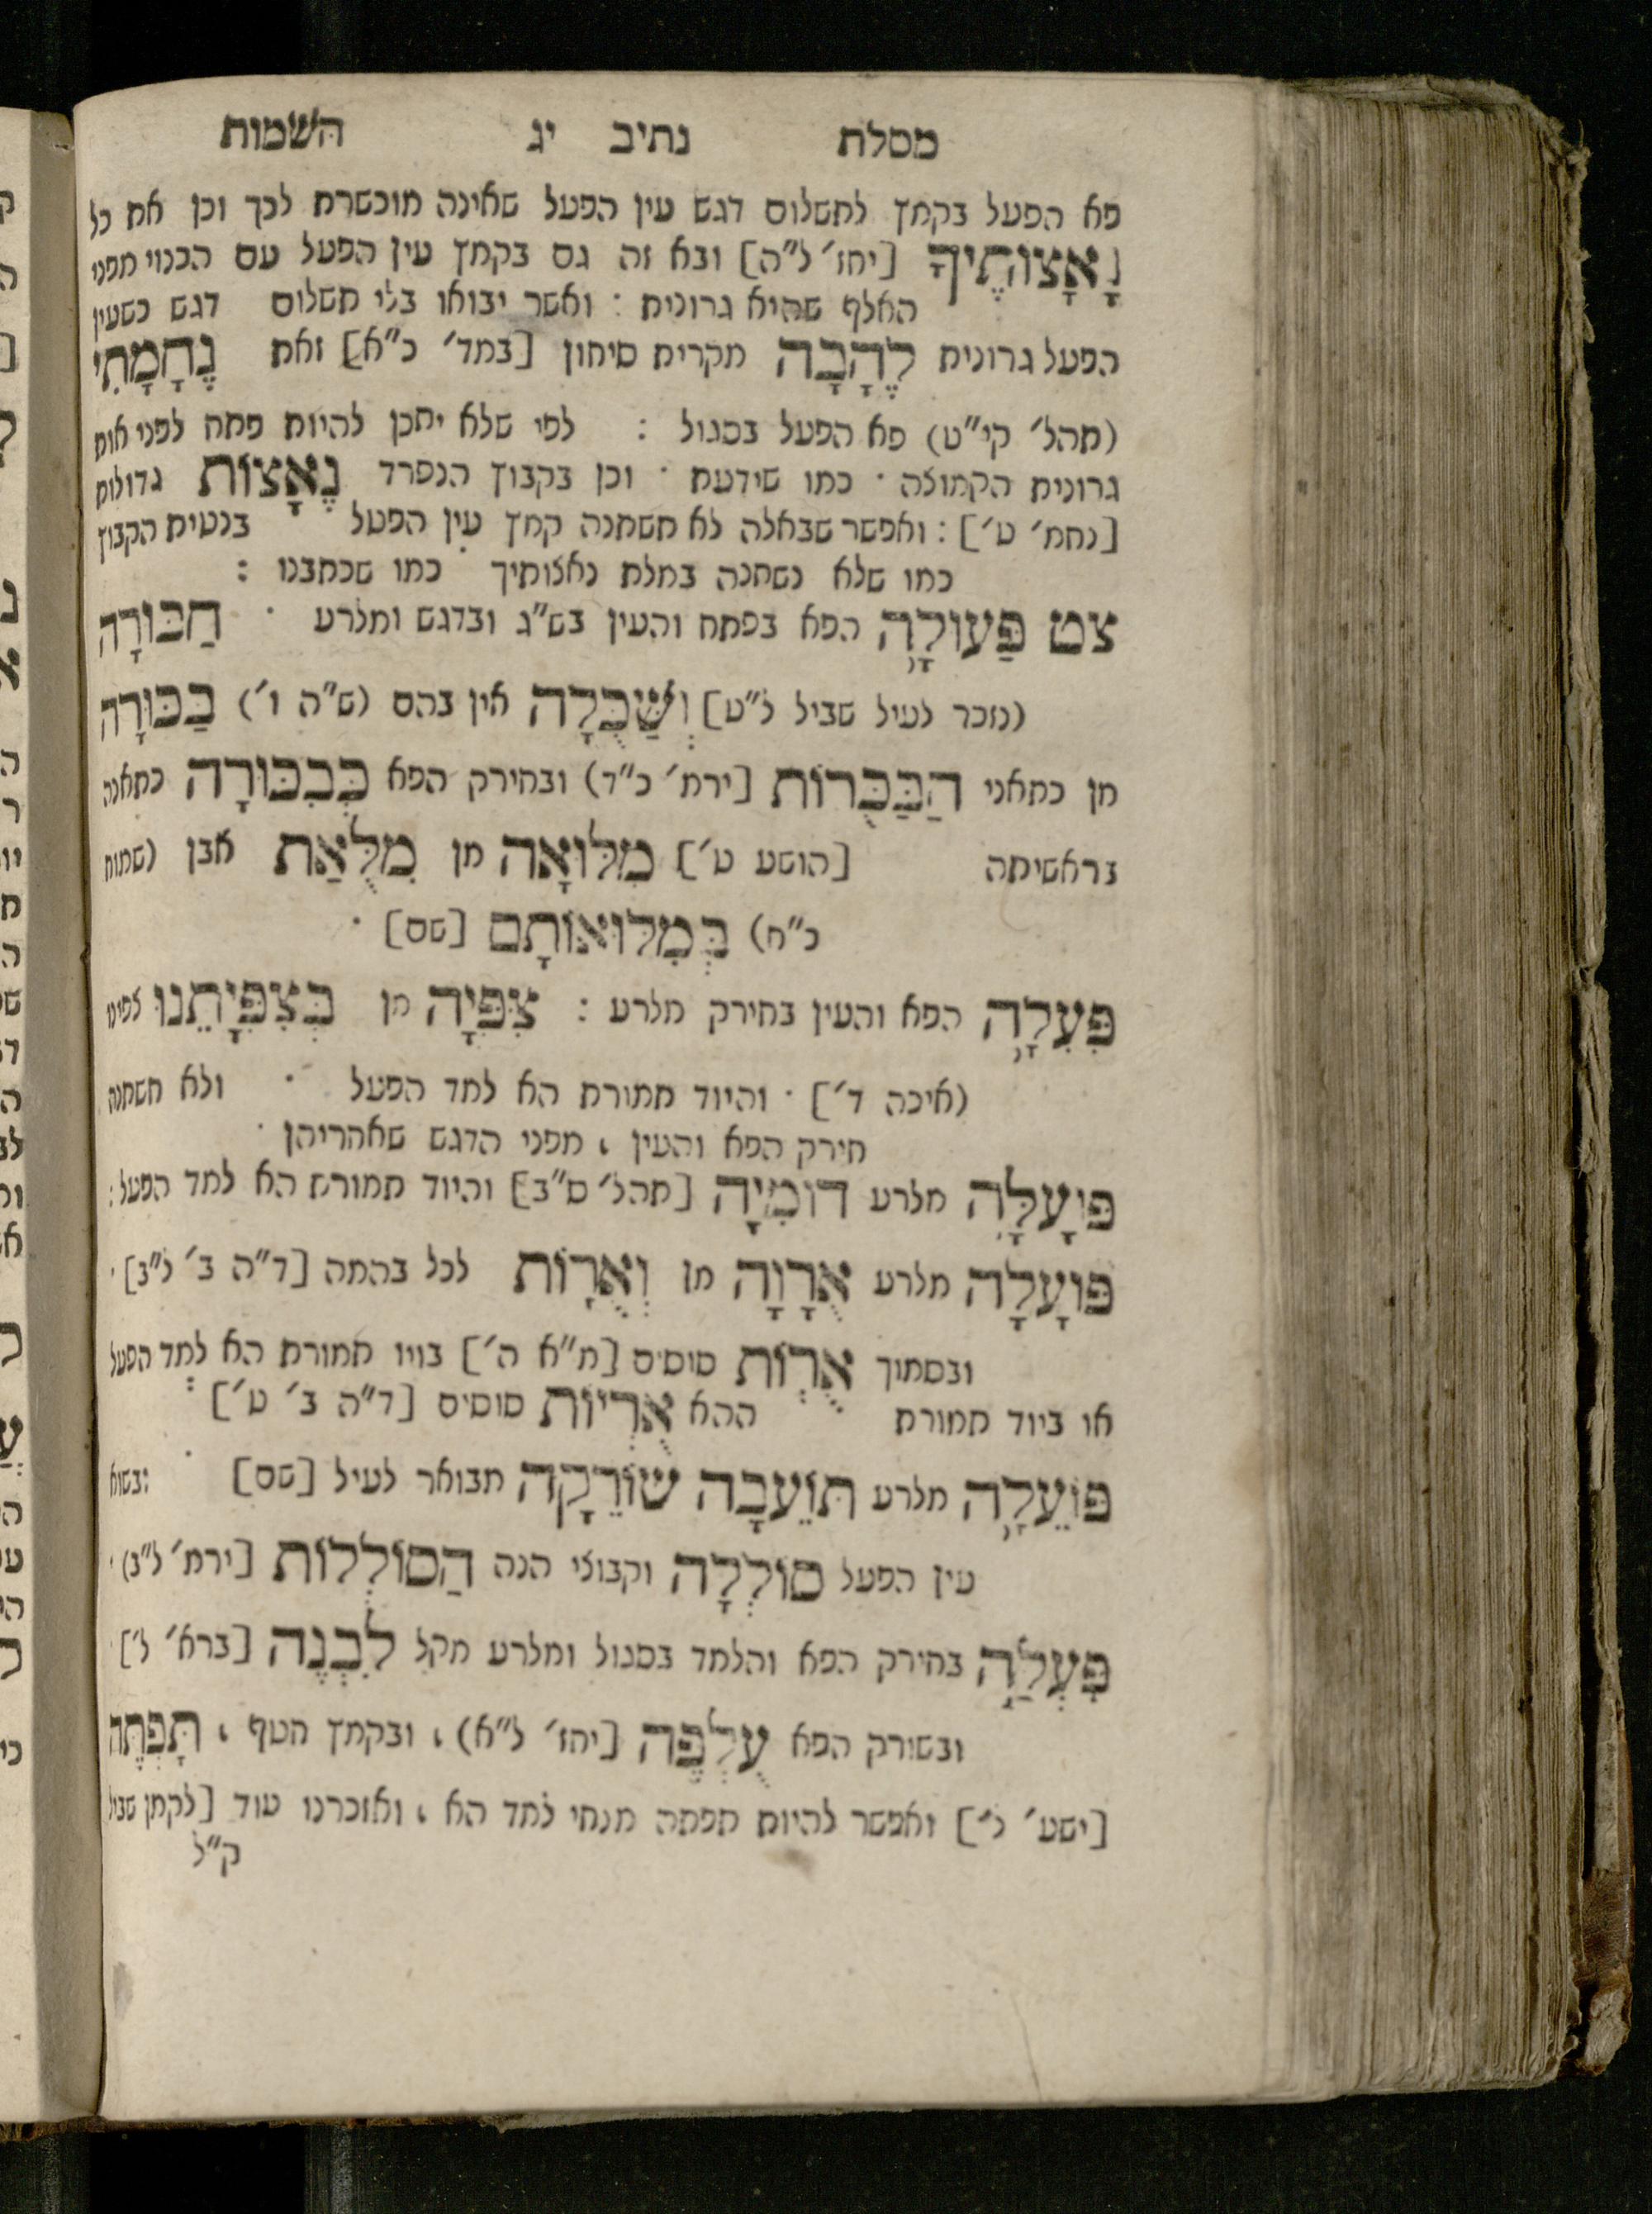 מסלת נתיב יג השמות
פא הפעל בקמץ לתשלום דגש עין הפעל שאינה מוכשרת לכך וכן את כל
נָאָצוֹתֶיךָ [יחז׳ ל״ה] ובא זה גם בקמץ עין הפעל עם הכנוי מפני
האלף שהיא גרונית : ואשר יבואו בלי תשלום דגש כשעין
הפעל גרונית לֶהָבָה מקרית סיחון [במד׳ כ״א] זאת נֶחָמָתִי
(תהל׳ קי״ט) פא הפעל בסגול : לפי שלא יתכן להיות פתח לפני אות
גרונית הקמוצה · כמו שידעת · וכן בקבוץ הנפרד נֶאָצוֹת גדולות
[נחמ׳ ט׳] : ואפשר שבאלה לא תשתנה קמץ עין הפעל בנטית הקבוץ
כמו שלא נשתנה במלת נאצותיך כמו שכתבנו :
צט פַּעוּלָה הפא בפתח והעין בש״ג ובדגש ומלרע · חַבּוּרָה
(נזכר לעיל שביל ל״ט] וְשַׁכֻּלָה אין בהם (ש״ה ו׳) בַּכּוּרָה
מן כתאני הַבַּכֻּרוֹת [ירמ׳ כ״ד) ובחירק הפא כְּבִכּוּרָה כתאנה
בראשיתה [הושע ט׳] מִלּוּאָה מן מִלֻּאַת אבן (שמות
כ״ח) בְּמִלּוּאוֹתָם [שם] ·
פִּעִלָה הפא והעין בחירק מלרע : צִפִּיָה מן בְּצִפִּיָתֵנוּ צפינו
(איכה ד׳] · והיוד תמורת הא למד הפעל · ולא תשתנה
חירק הפא והעין , מפני הדגש שאחריהן ·
פּוּעָלָּה מלרע דוּמִיָּה [תהל׳ ס״ב] והיוד תמורת הא למד הפעל :
פּוּעָלָה מלרע אֻרָוָה מן וְאֻרָוֹת לכל בהמה [ד״ה ב׳ ל״ב] ·
ובסמוך אֻרְוֹת סוסים [מ״א ה׳] בויו תמורת הא למד הפעל
או ביוד תמורת ההא אֻרְיוֹת סוסים [ד״ה ב׳ ט׳]
פּוֹעֵלָה מלרע תּוֹעֵבָה שׂוֹרֵקָה מבואר לעיל [שם] · ובשוא
עין הפעל סוֹלְלָה וקבוצי הנה הַסּוֹלְלוֹת [ירמ׳ ל״ב) ·
פִּעְלֶה בחירק הפא והלמד בסגול ומלרע מקל לִבְנֶה [ברא׳ ל׳] ·
ובשורק הפא עֻלְפֶּה [יחז׳ ל״א) , ובקמץ חטף , תָּפְתֶּה
[ישע׳ ל׳] ואפשר להיות תפתה מנחי למד הא , ואזכרנו עוד [לקמן שביל
ק״ל